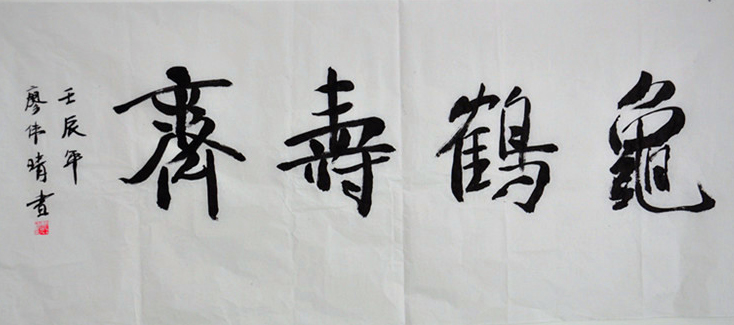 龜鶴壽齊
壬辰年
廖偉晴書